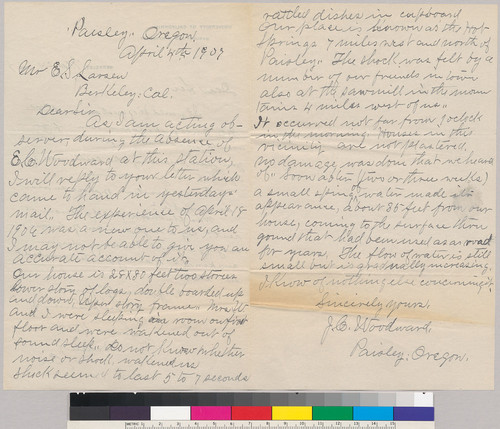 Paisley, Oregon,
April 4th, 1907
Mr E.S. Larsen
Berkeley, Cal.
Dear Sir,
As I am acting ob-
server during the absence of
E.C. Woodward at this station,
I will reply to your letter which
came to hand in yesterdays
mail. The experience of April 18
1906 was a new one to us, and
I may not be able to give you an
accurate account of it.
Our house is 28x80 feet two stories
lower story of logs, double boarded up
and down, upper story frame. My wife
and I were sleeping in room on first
floor and were wakened out of
sound sleep. Do not know whether
noise or shock wakened us
Shock seemed to last 5 to 7 seconds
rattled dishes in cupboard
Our place is known as the Hot
Springs 7 miles west and north of
Paisley. The shock was felt by a
number of our friends in town
also at the sawmill in the moun
tains 4 miles west of us.
It occurred not far from 5 oclock
in the morning. Houses in this
vicinity are not plastered,
no damage was done that we heard
of. Soon after (two or three weeks)
a small spring water made its
appearance, about 85 feet from our
house, coming to the surface thru
ground that had been used as a road
for years. The flow of water is still
small but is gradually increasing.
I know of nothing else concerning it.
Sincerely yours,
J.C. Woodward.
Paisley, Oregon.
METRIC 1 2 3 4 5 6 7 8 9 10 11 12 13 14 15